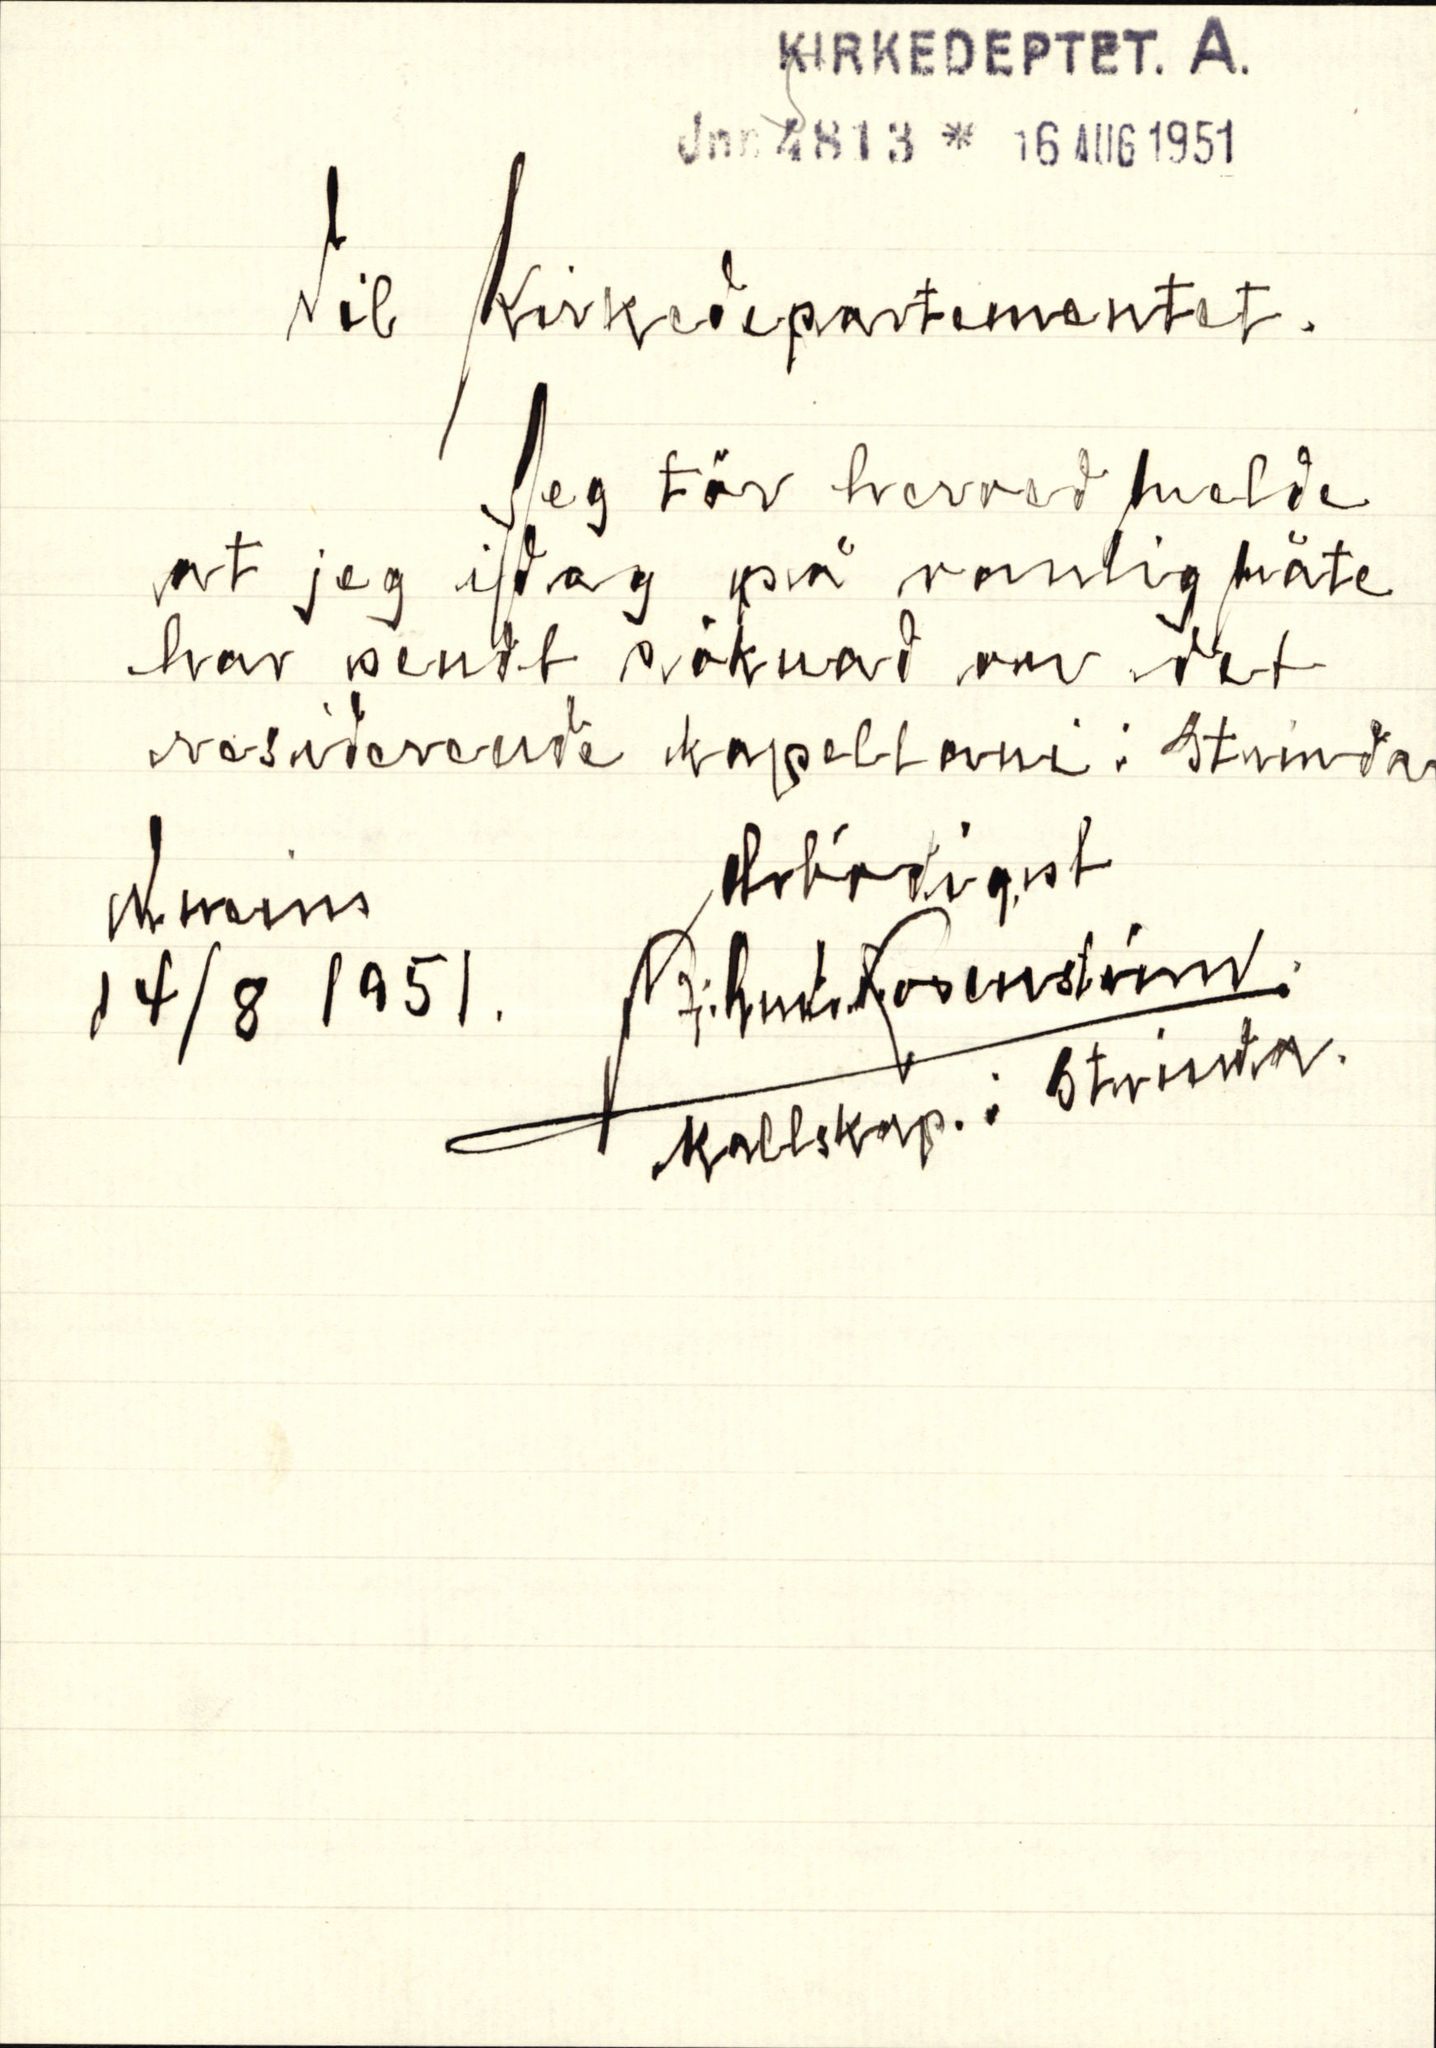 KIRKEDEPTET. A.
Jnr 4813 * 16 AUG 1951
Til Kirkedepartementet.
Jeg tör herved melde
at jeg idag på vanlig måte
har sendt söknad om det
residerende kapellani i Strinda
Ærbödigst
14/8 1951. Rosenström.
Kallskap. i Strinda.